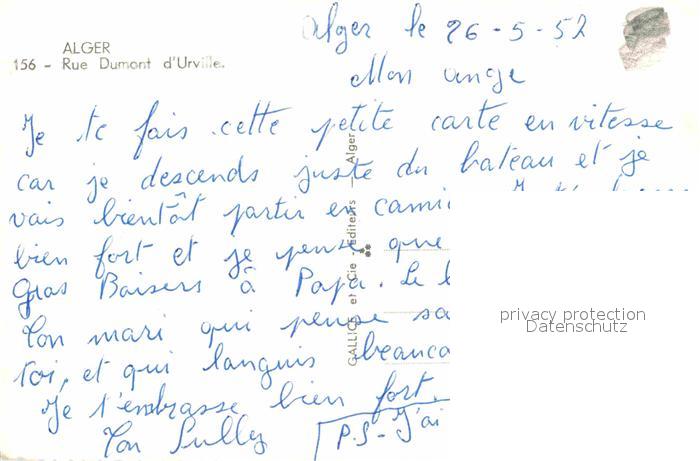 ALGER
156 - Rue Dumont d'Urville.
Alger le 26-5-52
Mon ange
Je te fais cette petite carte en vitesse
car je descends juste du bateau et je
vais bientôt partir en cami
bien fort et je pense que
Gros Baisers à Papa. Le
Ton mari qui pense sa
toi, et qui languis beauco
Je t'embrasse bien fort.
Ton Sully
P.S - J'ai
GALLICE et Cie - Editeurs - Alger
privacy protection
Datenschutz